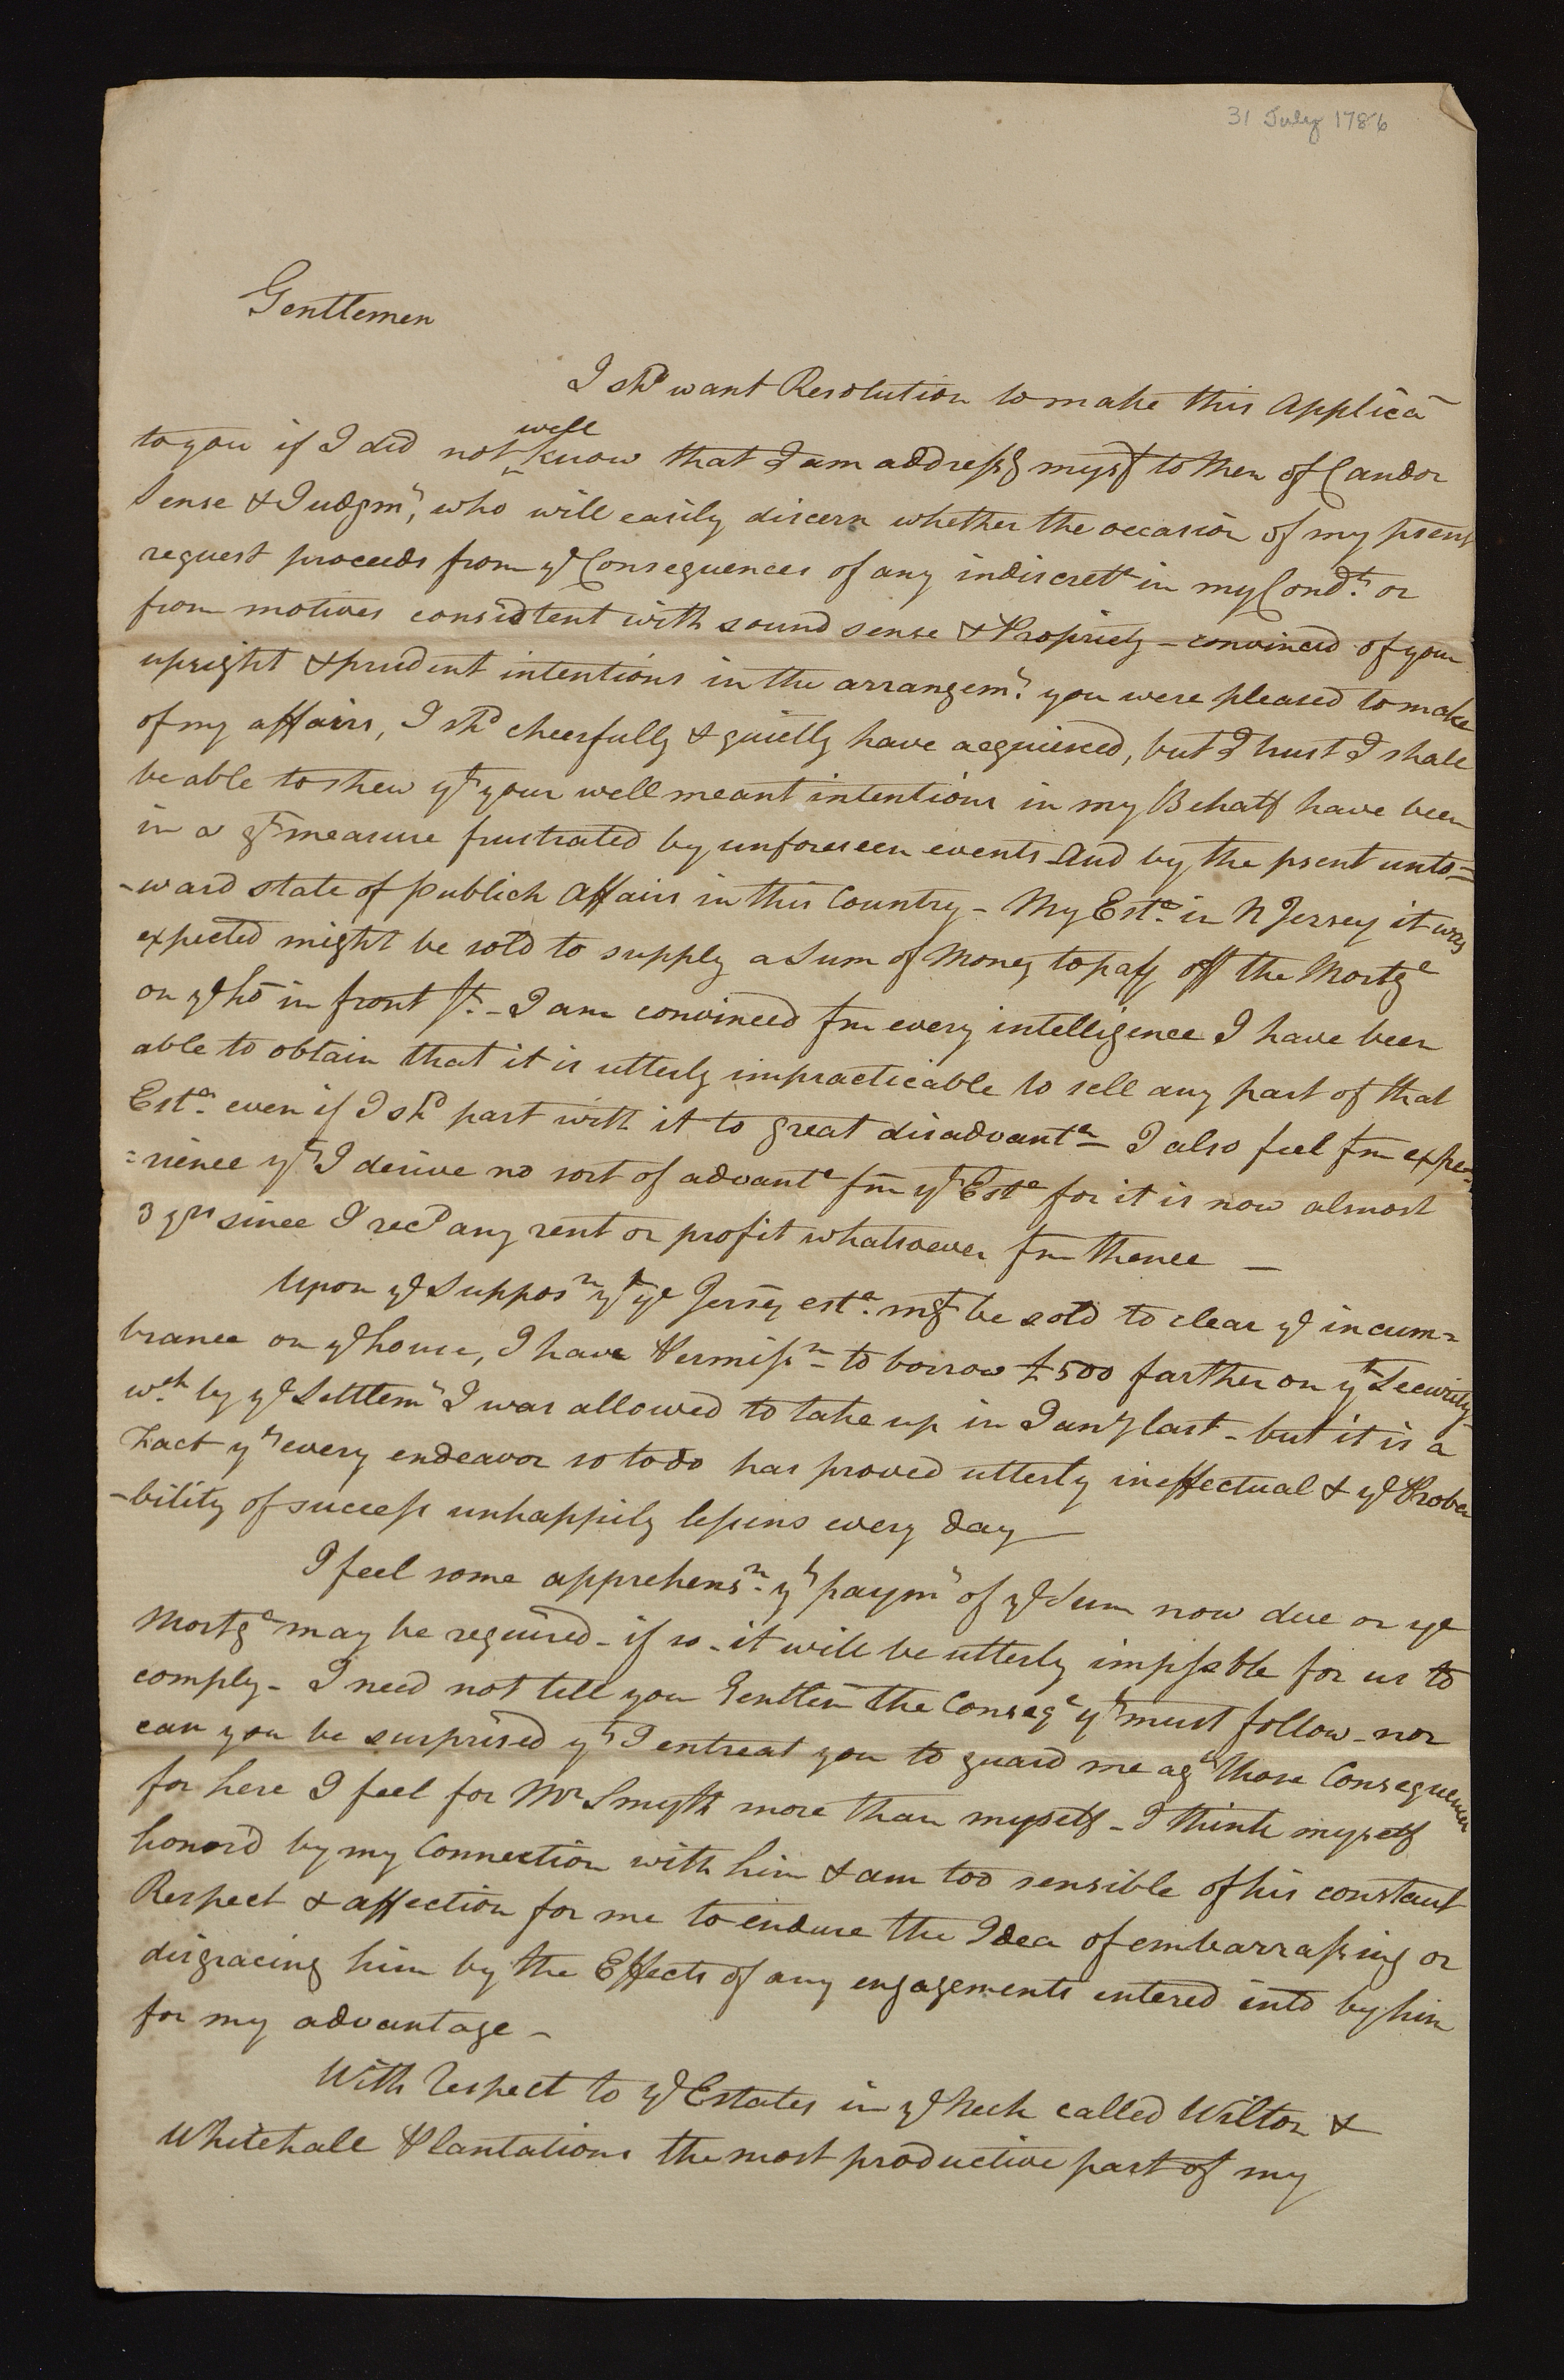 31 July 1786
Gentlemen
I shd want Resolution to make this Applicã
to you if I did not well know that I am addressg myself to Men of Candor
Sense & Judgmt, who will easily discern whether the occasion of my psent
request proceeds from ye Consequences of any indiscretn in my Condt. or
from motives consistent with sound sense & Propriety - convinced of your
upright & prudent intentions in the arrangemt. you were pleased to make
of my affairs, I shd cheerfully & quietly have acquiesced, but I trust I shall
be able to shew yt your well meant intentions in my Behalf have been
in a gt measure frustrated by unforeseen events And by the psent unto=
-ward state of publick Affairs in this Country - My Este. in N Jersey it was
expected might be sold to supply a Sum of Money to pay off the Mortge
on ye ho in front St. - I am convinced fm every intelligence I have been
able to obtain that it is utterly impracticable to sell any part of that
Este. even if I shd part with it to great disadvante - I also feel fm expe=
=rience yt I derive no sort of advante fm yt Este for it is now almost
3 yrs since I recd any rent or profit whatsoever fm thence —
Upon ye Supposn yt ye Jersey este. mt be sold to clear ye incum=
brance on ye house, I have Permissn - to borrow £500 farther on yt Security
wch by ye Settlemt I was allowed to take up in Jany last - but it is a
Fact yt every endeavor so to do has proved utterly ineffectual & ye Proba
-bility of success unhappily lessens every day —
I feel some apprehensn. yt paymt of ye Sum now due on ye
Mortge may be required - if so - it will be utterly impssble for us to
comply - I need not tell you Gentlem̃ the Conseqe yt must follow - nor
can you be surprised yt I entreat you to guard me agt those Consequences
for here I feel for Mr Smyth more than myself - I think myself
honord by my Connection with him & am too sensible of his constant
Respect & affection for me to endure the Idea of embarrassing or
disgracing him by the Effects of any engagements entered into by him
for my advantage -
With respect to ye Estates in ye Neck called Wilton &
Whitehall Plantations the most productive part of my